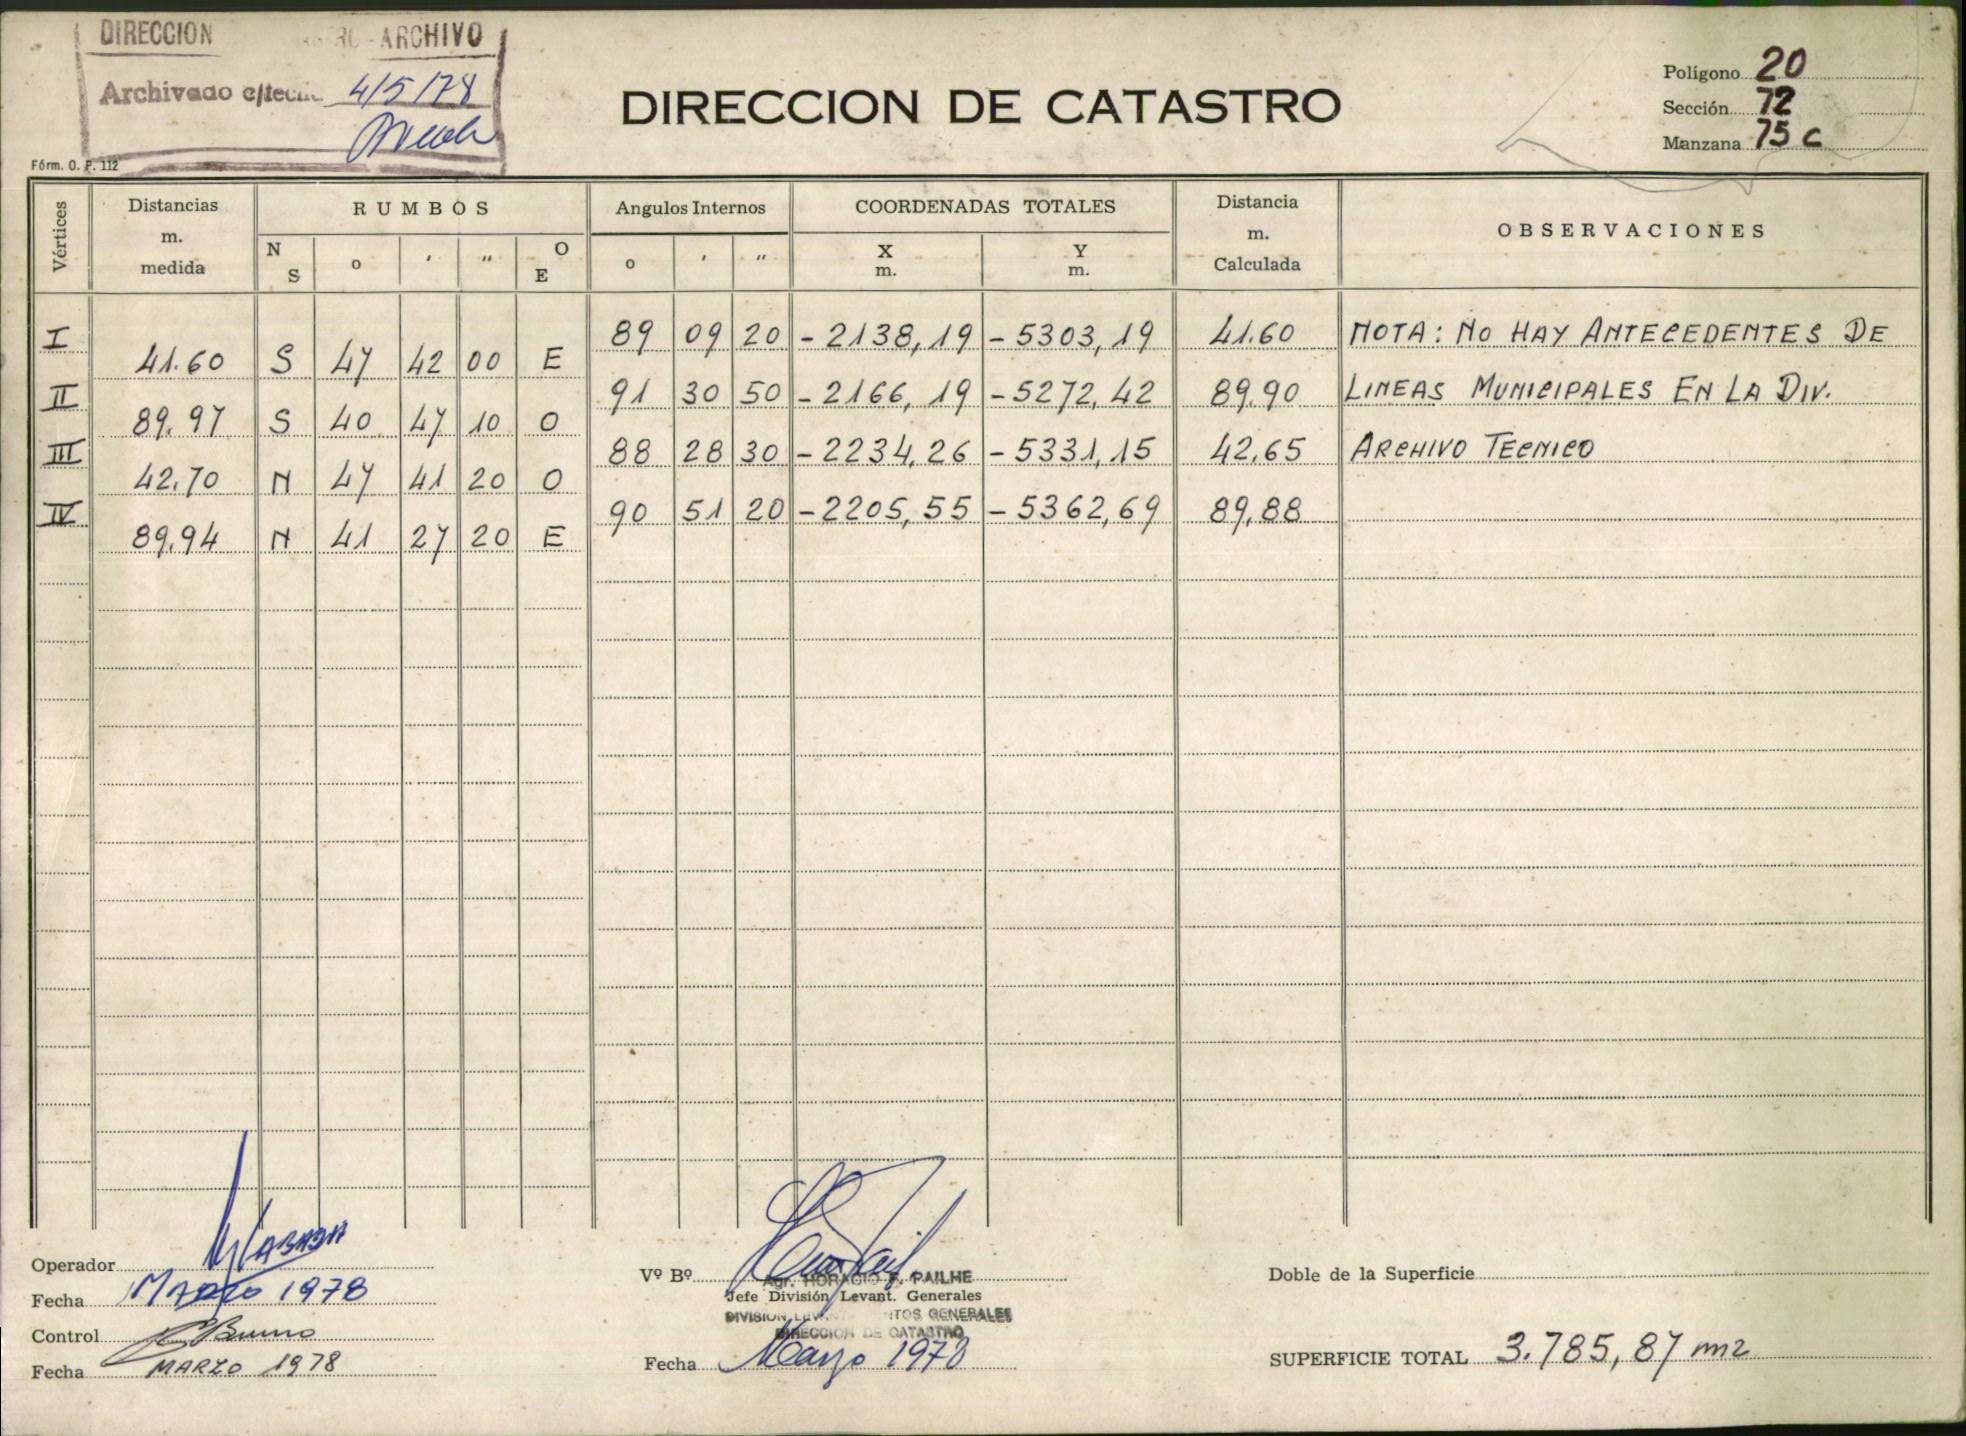 DIRECCION ARCHIVO
Archivado c/tecn. 4/5/78
Fórm. O. P. 112
DIRECCION DE CATASTRO
Polígono 20
Sección 72
Manzana 75 C
Vértices
Distancias m. medida
RUMBOS
N S o ' " O E
Angulos Internos
o ' "
COORDENADAS TOTALES
X m. Y m.
Distancia m. Calculada
OBSERVACIONES
I 89 09 20 -2138,19 -5303,19 41.60 NOTA: NO HAY ANTECEDENTES DE
41.60 S 47 42 00 E
II 91 30 50 -2166,19 -5272,42 89.90 LINEAS MUNICIPALES EN LA DIV.
89.97 S 40 47 10 O
III 88 28 30 -2234,26 -5331,15 42.65 ARCHIVO TECNICO
42.70 N 47 41 20 O
IV 90 51 20 -2205,55 -5362,69 89,88
89.94 N 41 27 20 E
Operador
Fecha MARZO 1978
Control
Fecha MARZO 1978
Vº Bº
Agr. HORACIO F. PAILHE
Jefe División Levant. Generales
DIVISION GENERALES
DIRECCION DE CATASTRO
Fecha Marzo 1978
Doble de la Superficie
SUPERFICIE TOTAL 3.785,87 m2